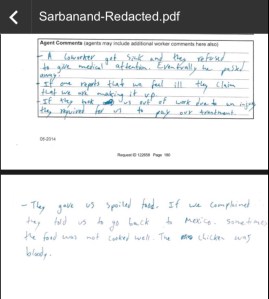 Sarbanand-Redacted.pdf
Agent Comments (agents may include additional worker comments here also)
- A coworker got sick and they refused
to give medical attention. Eventually he passed
away.
- If one reports that we feel ill they claim
that we are making it up.
- If they took us out of work due to an injury
they required for us to pay our treatment.
05-2014
Request ID 122656 Page 160
- They gave us spoiled food. If we complained
they told us to go back to Mexico. Sometimes
the food was not cooked well. The chicken was
bloody.